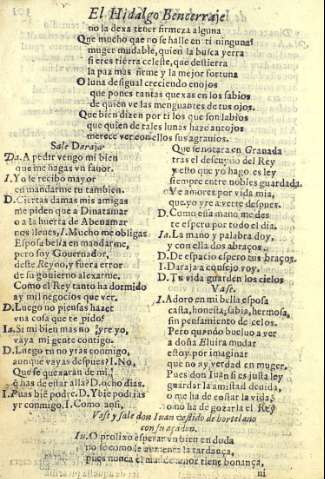 El Hidalgo Bencerraje
no la dexa tener firmeza alguna
Que mucho que no se halle en ti ninguna?
muger mudable, quien la busca yerra
si eres tierra celeste, que destierra
la paz mas firme y la mejor fortuna
O luna desigual creciendo enojos
que pones tantas quexas en los labios
de quien ve las menguantes de tus ojos.
Que bien dizen por ti los que son sabios
que quien de tales lunas haze antojos
merece ver con ellos sus agravios.
Sale Daraja
Da. A pedir vengo mi bien
que me hagas vn fauor.
I. Yo le recibo mayor
en mandarme tu tambien.
D. Ciertas damas mis amigas
me piden que a Dinatamar
o a la huerta de Abenamar
nos lleues, I. Mucho me obligas
Esposa bella en mandarme,
pero soy Gouernador,
deste Reyno, y fuera error
de su gouierno alexarme.
Como el Rey tanto ha dormido
ay mil negocios que ver.
D. Luego no piensas hazer
vna cosa que te pido?
Ia. Si mi bien mas no yre yo,
vaya mi gente contigo.
D. Luego tu no yras conmigo,
aunque vayas despues? I. No,
Que se quexaran de mi.
q has de estar alla? D. ocho dias.
I. Pues bie podre. D. Y bie podrias
yr conmigo, I. Como assi,
Que notara en Granada
tras el descuydo del Rey
y esto que yo hago es ley
siempre entre nobles guardada.
Ve amores por vida mia,
que yo yre a verte despues.
D. Como essa mano me des
te espero por todo el dia.
Ia. La mano y palabra doy,
y con ella dos abraços,
D. De espacio espero tus braços.
I. Daraja a consejo voy.
D. Tu vida guarden los cielos
Vase.
I. Adoro en mi bella esposa
casta, honesta, sabia, hermosa,
sin pensamiento de celos.
Pero quando bueluo a ver
a doña Eluira mudar
estoy por imaginar
que no ay verdad en muger.
Pues don Iuan si es justa ley
guardar la amistad deuida,
o me ha de costar la vida,
o no ha de gozarla el Rey
Vase y sale don Iuan vestido de hortelano
con su açadon.
Iu. O prolixo esperar vn bien en duda
no se como le aumenta la tardança,
pues nunca el mar de amor tiene bonança,
ni